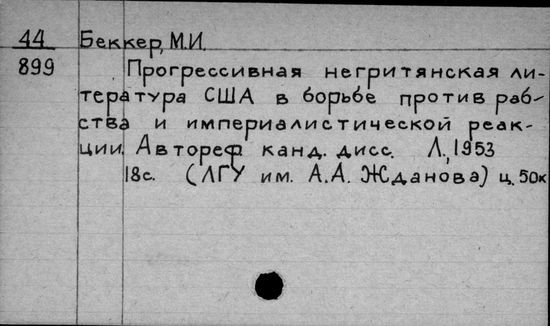 44 Беккер, М.И.
899 Прогрессивная негритянская ли-
тература США в борьбе против раб-
ства и империалистической реак-
ции. Автореф канд. дисс. Л., 1953
18с. (ЛГУ им. А.А. Жданова) ц. 50к